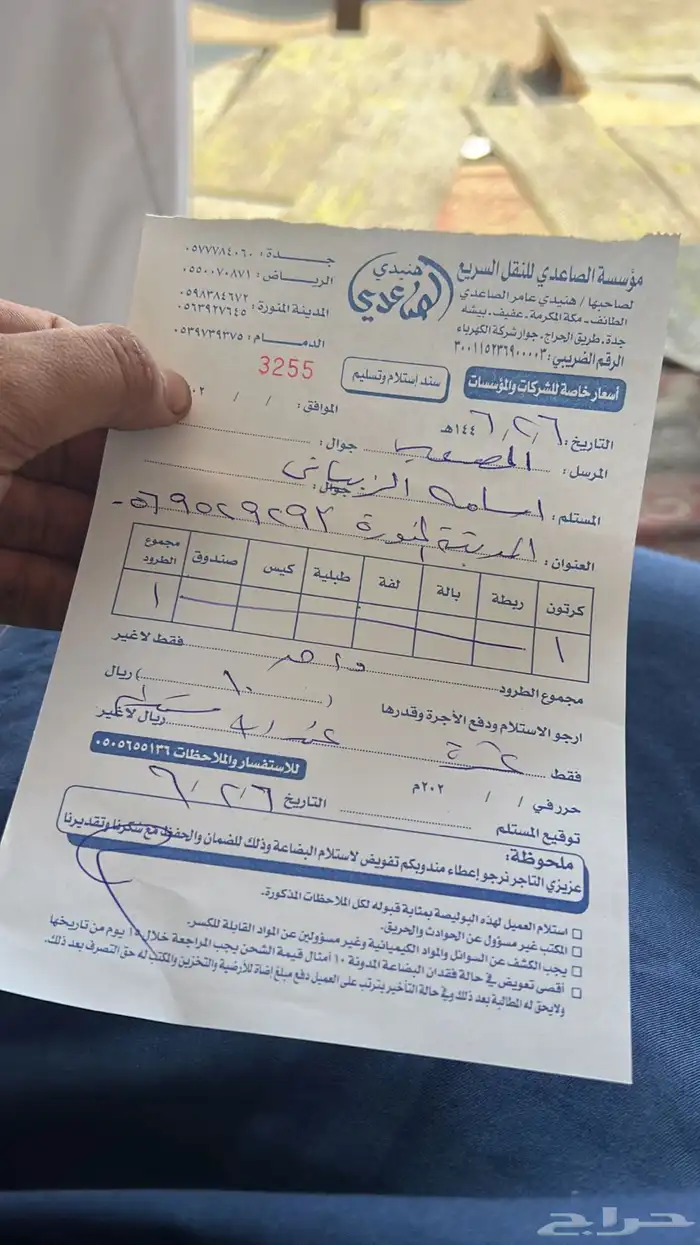 مؤسسة الصاعدي للنقل السريع
لصاحبها / هنيدي عامر الصاعدي
الطائف - مكة المكرمة - عفيف - بيشه
جدة - طريق الحراج - جوار شركة الكهرباء
الرقم الضريبي: ٣٠٠١١٥٢٣٦٩٠٠٠٠٣
هنيدي الصاعدي
جدة: ٠٥٧٧٧٨٤٠٦٠
الرياض: ٠٥٥٠٠٧٠٨٧١
المدينة المنورة: ٠٥٩٨٣٨٤٦٧٢
٠٥٦٣٩٢٧٦٤٥
الدمام: ٠٥٣٩٧٣٩٣٧٥
3255
أسعار خاصة للشركات والمؤسسات
سند إستلام وتسليم
التاريخ: ٢٦ / ٢ / ١٤٤٦هـ
الموافق: / / ٢٠٢
المرسل: جوال:
المستلم: اسامه الزبياني جوال:
العنوان: المدينة المنورة ٠٥٦٩٥٢٩٢٩٣
كرتون ربطة بالة لفة طبلية كيس صندوق مجموع الطرود
١ ١
مجموع الطرود واحد فقط لاغير
ارجو الاستلام ودفع الأجرة وقدرها ( ١٠ ) ريال
فقط ريال لاغير
حرر في / / ٢٠٢م
للاستفسار والملاحظات ٠٥٠٥٦٥٥١٣٦
توقيع المستلم التاريخ ٢٦ / ٢ / ٦
ملحوظة:
عزيزي التاجر نرجو إعطاء مندوبكم تفويض لاستلام البضاعة وذلك للضمان والحفظ مع شكرنا وتقديرنا
استلام العميل لهذه البوليصة بمثابة قبوله لكل الملاحظات المذكورة.
المكتب غير مسؤول عن الحوادث والحريق.
يجب الكشف عن السوائل والمواد الكيميائية وغير مسؤولين عن المواد القابلة للكسر.
أقصى تعويض في حالة فقدان البضاعة المدونة ١٠ أمثال قيمة الشحن يجب المراجعة خلال ١٥ يوم من تاريخها
ولايحق له المطالبة بعد ذلك وفي حالة التأخير يترتب على العميل دفع مبلغ إضافة للأرضية والتخزين والمكتب له حق التصرف بعد ذلك.
حراج